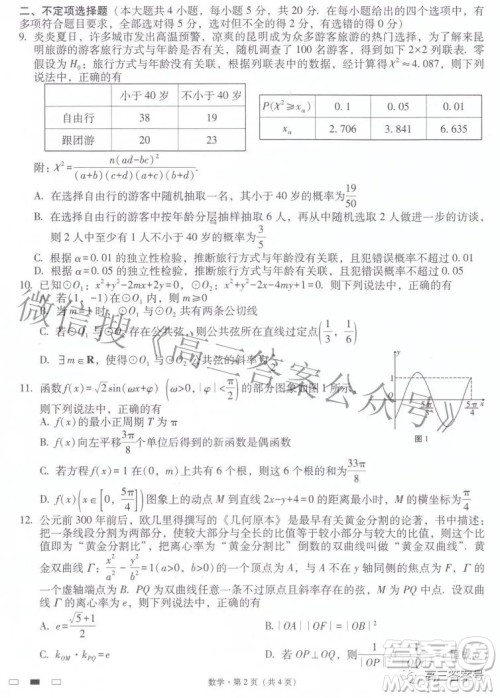 二、不定项选择题（本大题共4小题，每小题5分，共20分. 在每小题给出的四个选项中，有
多项符合题目要求，全部选对得5分，选对但不全的得2分，有选错的得0分）
9. 炎炎夏日，许多城市发出高温预警，凉爽的昆明成为众多游客旅游的热门选择，为了解来昆
明旅游的游客旅行方式与年龄是否有关，随机调查了100名游客，得到如下2×2列联表. 零
假设为H₀：旅行方式与年龄没有关联，根据列联表中的数据，经计算得χ²≈4.087，则下列
说法中，正确的有
小于40岁 不小于40岁
自由行 38 19
跟团游 20 23
P(χ²≥xα) 0.1 0.05 0.01
xα 2.706 3.841 6.635
附：χ²=n(ad-bc)²/((a+b)(c+d)(a+c)(b+d)).
A. 在选择自由行的游客中随机抽取一名，其小于40岁的概率为19/50
B. 在选择自由行的游客中按年龄分层抽样抽取6人，再从中随机选取2人做进一步的访谈，
则2人中至少有1人不小于40岁的概率为3/5
C. 根据α=0.01的独立性检验，推断旅行方式与年龄没有关联，且犯错误概率不超过0.01
D. 根据α=0.05的独立性检验，推断旅行方式与年龄有关联，且犯错误概率不超过0.05
10. ⊙O₁：x²+y²-2mx+2y=0，⊙O₂：x²+y²-2x-4my+1=0. 则下列说法中，正确的有
A. 若(1，-1)在⊙O₁内，则m≥0
B. 当m=1时，⊙O₁与⊙O₂共有两条公切线
C. 若⊙O₁与⊙O₂存在公共弦，则公共弦所在直线过定点(1/3，1/6)
D. ∃m∈R，使得⊙O₁与⊙O₂公共弦的斜率为
11. 函数f(x)=√2sin(ωx+φ)(ω>0，|φ|<π/2)的部分图象如图1所示，
则下列说法中，正确的有
A. f(x)的最小正周期T为π
B. f(x)向左平移3π/8个单位后得到的新函数是偶函数
C. 若方程f(x)=1在(0，m)上共有6个根，则这6个根的和为33π/8
D. f(x)(x∈[0，5π/4])图象上的动点M到直线2x-y+4=0的距离最小时，M的横坐标为π/4
y
x
5π/4
图1
12. 公元前300年前后，欧几里得撰写的《几何原本》是最早有关黄金分割的论著，书中描述：
把一条线段分割为两部分，使较大部分与全长的比值等于较小部分与较大的比值，则这个比
值即为“黄金分割比”，把离心率为“黄金分割比”倒数的双曲线叫做“黄金双曲线”. 黄金
双曲线Γ：x²/a²-y²/b²=1的一个顶点为A，与A不在y轴同侧的焦点为F，Γ的
一个虚轴端点为B，PQ为双曲线任意一条不过原点且斜率存在的弦，M为PQ中点. 设双曲
线Γ的离心率为e，则下列说法中，正确的有
A. e=(√5+1)/2
B. |OA||OF|=|OB|²
C. k_OM·k_PQ=e
数学·第2页（共4页）
微信搜《高三答案公众号》